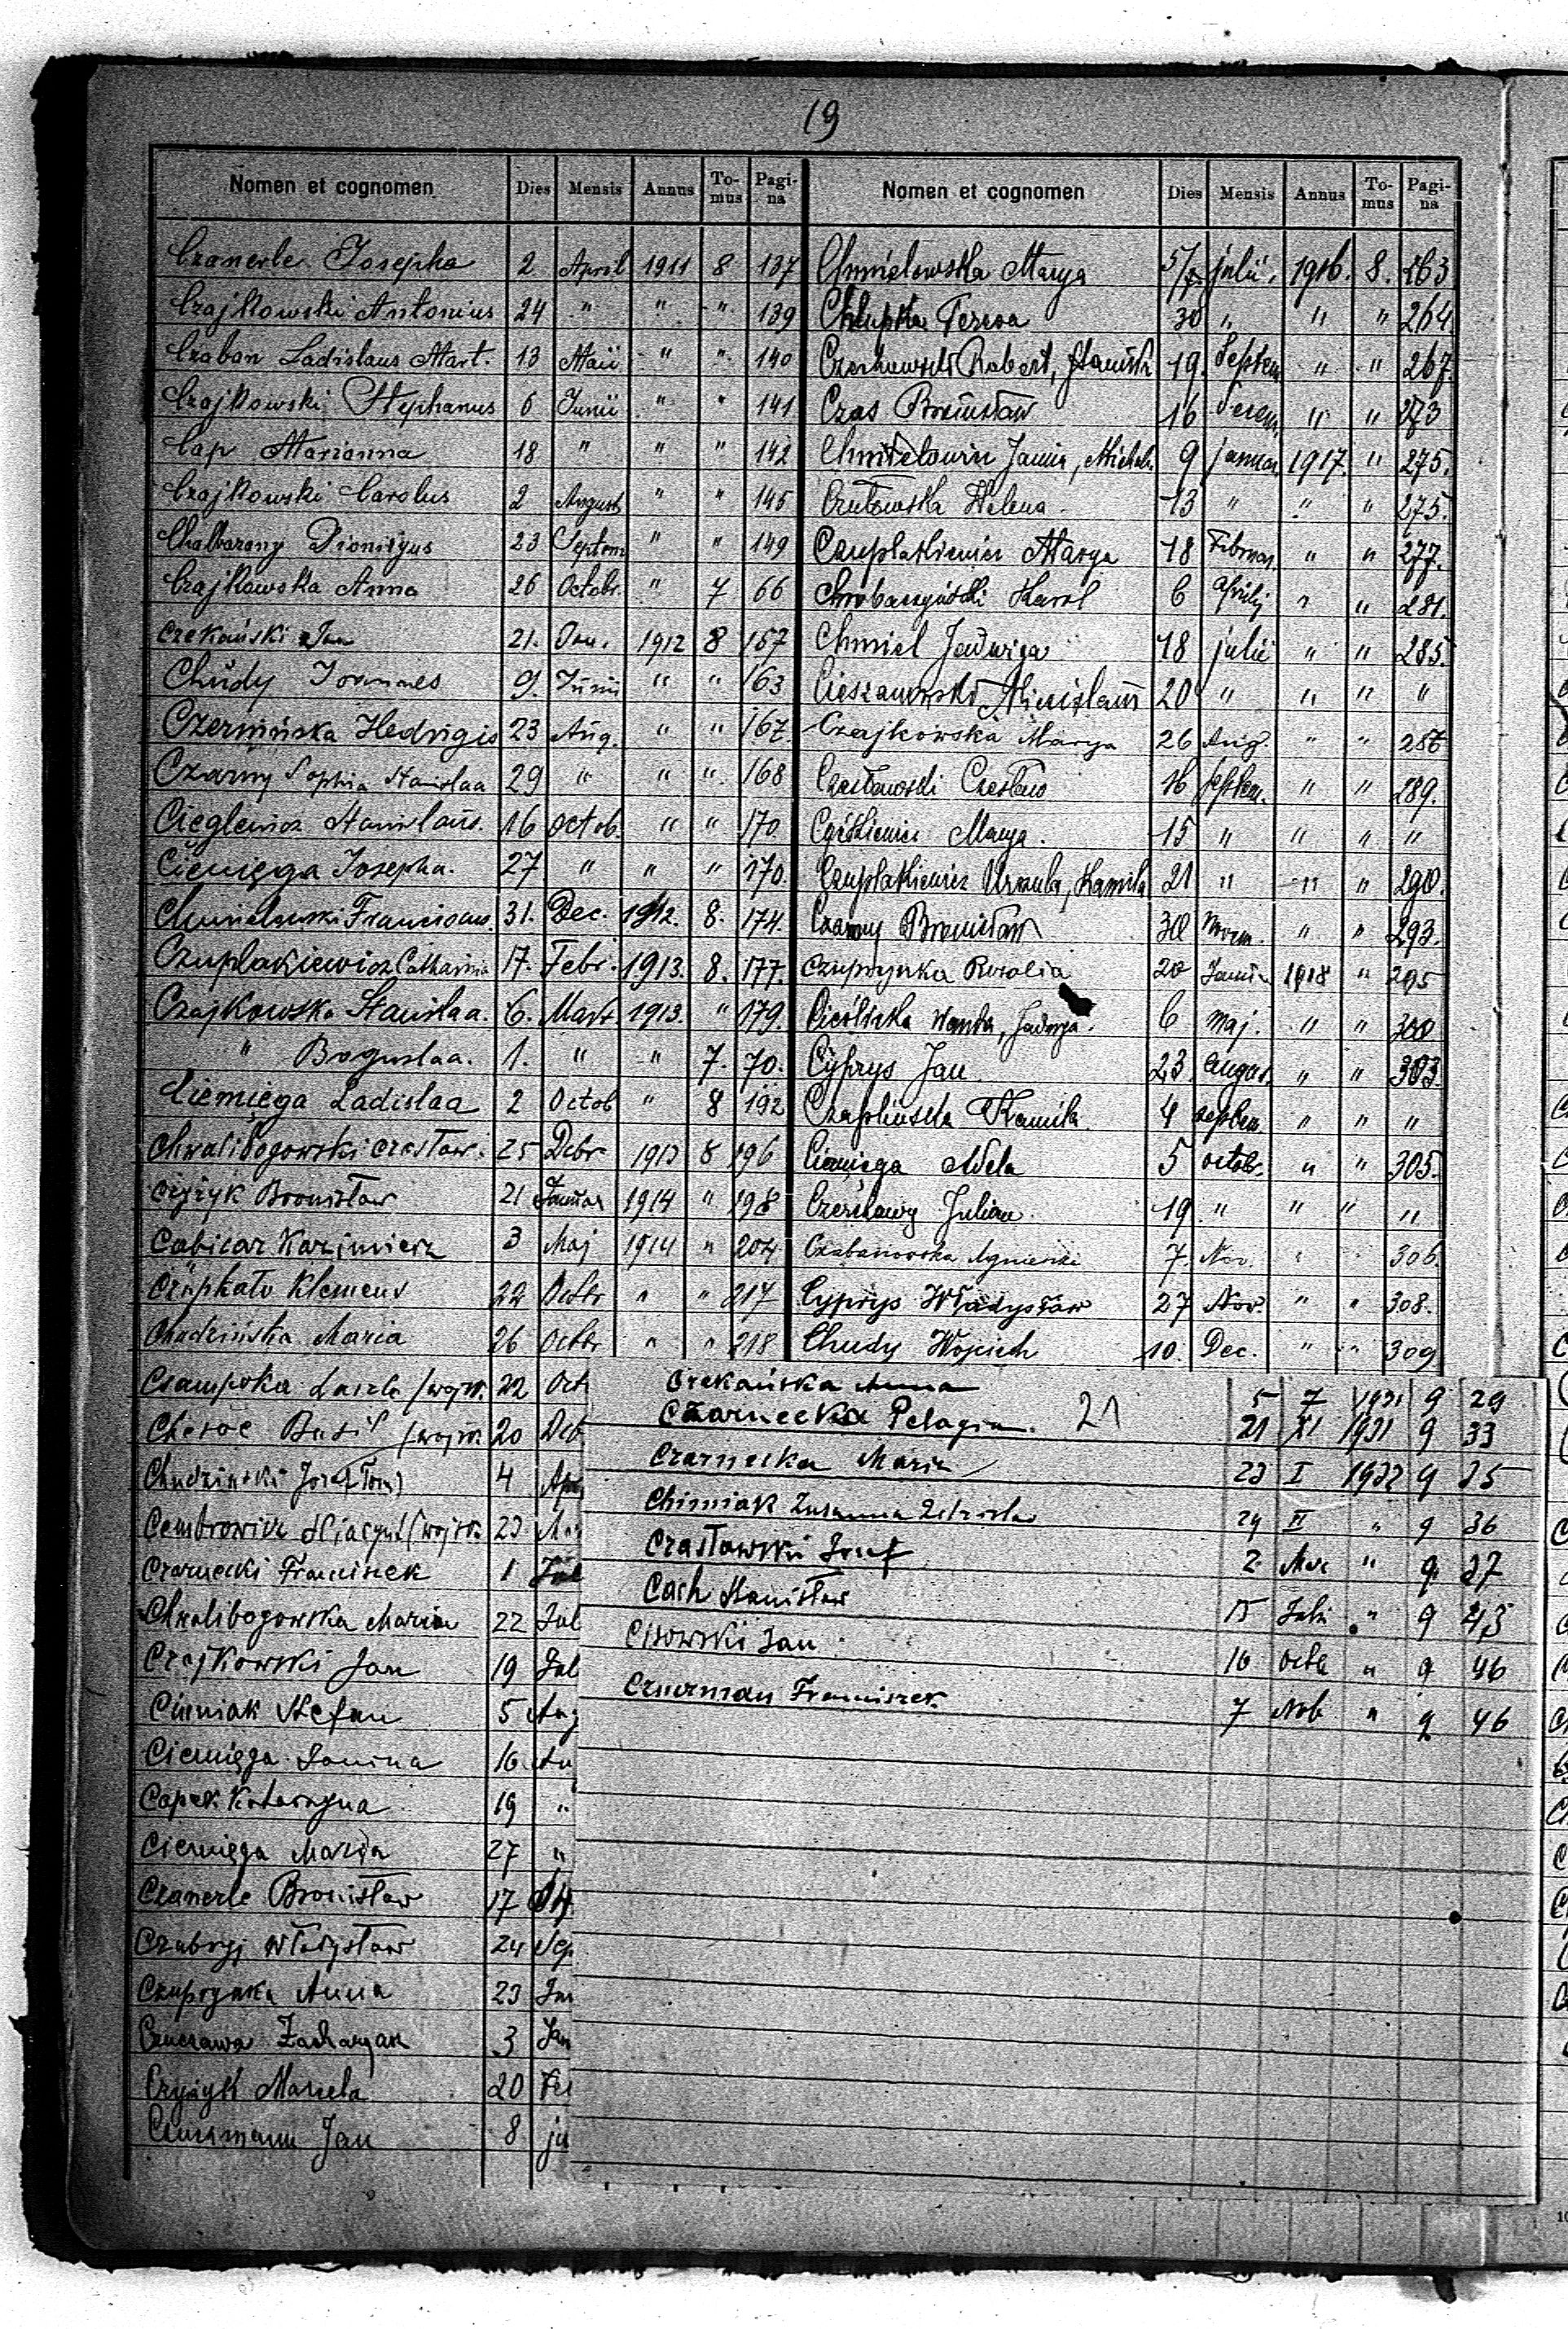 19
Nomen et cognomen Dies Mensis Annus To-mus Pagi-na
Czanerle Josepha 2 April 1911 8 137
Czajkowski Antonius 24 " " " 139
Czaban Ladislaus Mart. 13 Maii " " 140
Czajkowski Stephanus 6 Junii " " 141
Cap Marianna 18 " " " 142
Czajkowski Carolus 2 August " " 145
Dionisyus 23 Septem " " 149
Czajkowska Anna 26 Octobr. " 7 66
Czekański Jan 21. Jan. 1912 8 157
Chudy Joannes 9. Junii " " 163
Czermińska Hedvigis 23 Aug. " " 167
Czarny Sophia Stanislaa 29 " " " 168
Cieglewicz Stanislaus. 16 Octob. " " 170
Ciemięga Josepha. 27 " " " 170.
Chmielewski Franciscus. 31. Dec. 1912. 8. 174.
Czuplakiewicz Catharina 17. Febr. 1913. 8. 177.
Czajkowska Stanislaa. 6. Mart. 1913. " 179.
" Boguslaa. 1. " " 7. 70.
Ciemięga Ladislaa 2 Octob " 8 192
Chwalibogowski Czesław. 25 Dcbr 1913 8 196
Czyżyk Bronisław 21 Januar 1914 " 198
Cabicar Kazimierz 3 Maj 1914 " 204
Czupkato Klemens 22 Octbr " " 217
Chudzińska Maria 26 Octbr " " 218
Csampoka Laszlo (wojsk. 22 Oct
Basil (wojsk. 20
Chudziński Józef (Tom) 4 Ap
Cembrowicz Hiacynt (wojsk. 23
Czarnecki Franciszek 1 Jul
Chwalibogowska Maria 22 Jul
Czajkowski Jan 19 Jul
Cimiak Stefan 5 Aug
Ciemięga Janina 16. Au
Capek Katarzyna 19 "
Ciemięga Maria 27 "
Czanerle Bronisław 17
Władysław 24 Sep
Czuprynka Anna 23 Jan
3 Jan
Czyżyk Marcela 20
Czuczmann Jan 8 ju
Nomen et cognomen Dies Mensis Annus To-mus Pagi-na
Chmielowska Marya 5/7. julii. 1916. 8. 263
Chlupka Teresa 30 " " " 264
Czechowski Robert, 19. Septem " " 267.
Czas Bronisław 16 " " 273
9 januar. 1917. " 275.
Helena 13 " " " 275.
Czuplatkiewicz Marya 18 Februar. " " 277.
Karol 6 Aprilis " " 281.
Chmiel Jadwiga 18 julii " " 285.
Cieszanowski 20 " " " "
Czajkowska Marya 26 Aug. " " 286
Czesław 16 Septem. " " 289.
Marya. 15 " " " "
Czuplatkiewicz Urszula, Kamila 21 " " " 290.
Czarny Bronisław 30 " " 293.
Czuprynka Rozalia 20 1918 " 295
Cieślińska Wanda, Jadwga. 6 Maj. " " 300.
Cyprys Jan 23. August. " " 303
Czaplińska Kamila 4 septem. " " "
Ciemięga Adela 5 octobr. " " 305.
Julian. 19 " " " "
Czabanowska Agnieszka 7. Nov. " 306.
Cyprys Władysław 27 Nov. " " 308.
Chudy Wojciech 10. Dec. " " 309
Czekańska Anna 5 7 1931 9 29
Czarnecka Pelagia. 21 21 XI 1931 9 33
Czarnecka Maria 23 I 1932 9 35
Chimiak Zuzanna 29 II " 9 36
Czasławski Józef 2 Mar " 9 37
Cach Stanisław 15 Julii " 9 43
Cisowski Jan 16 octb " 9 46
Czuczman Franciszek 7 Nob " 9 46